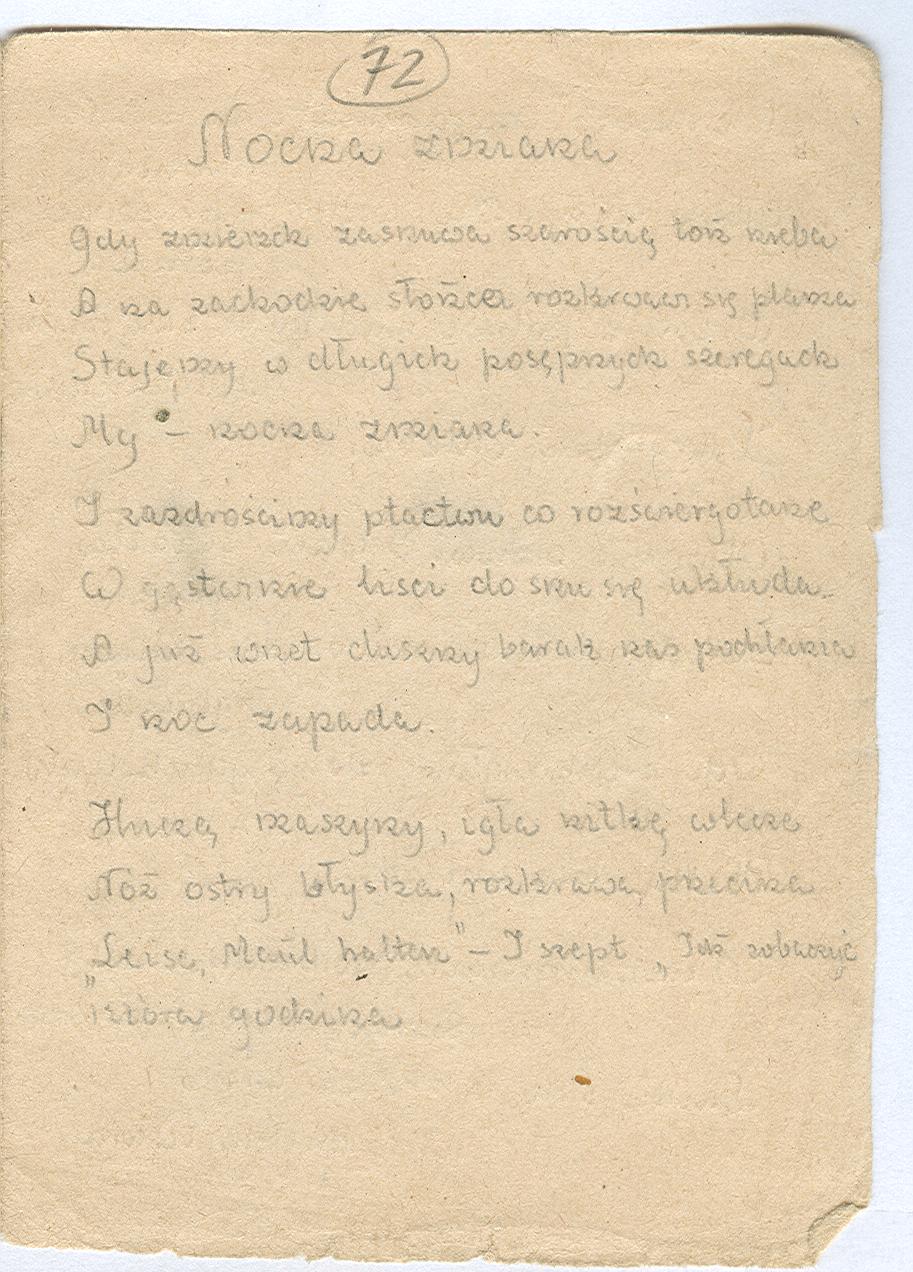 72
Nocna zmiana
Gdy zmierzch zasnuwa szarością toń nieba
A na zachodzie słońca rozkrwawi się plama
Stajemy w długich posępnych szeregach
My – nocna zmiana.
I zazdrościmy ptactwu co rozświergotane
W gęstwinie liści do snu się układa..
A już wnet duszny barak nas pochłania
I noc zapada.
Huczą maszyny, igła nitkę wlecze
Nóż ostry błyska, rozkrawa, przecina
"Leise, Maul halten" – I szept. "Idź zobaczyć
która godzina